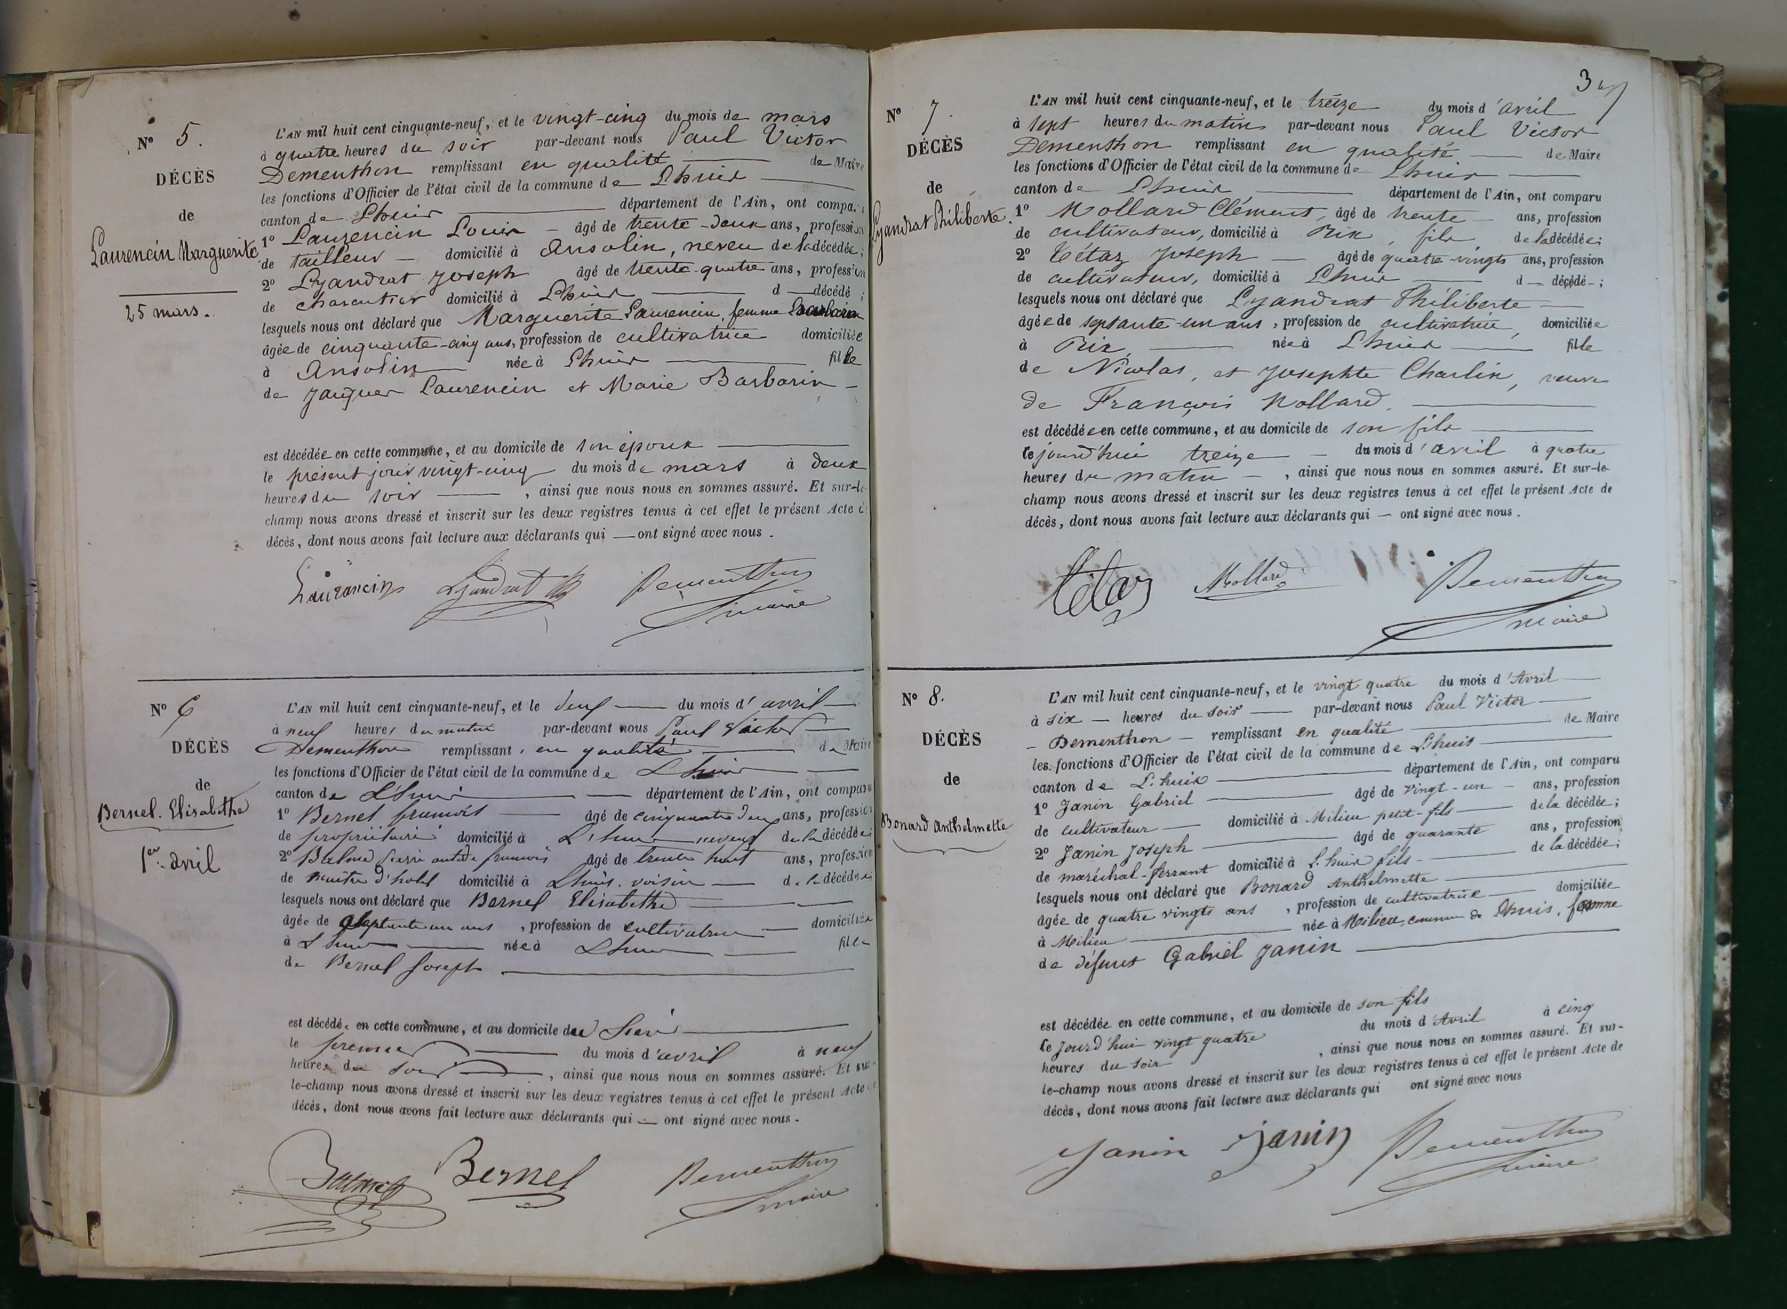 N° 5.
DÉCÈS
de
Laurencin Marguerite
25 mars.
L'AN mil huit cent cinquante-neuf, et le vingt-cinq du mois de mars
à quatre heures du soir par-devant nous Paul Victor
Dementhon remplissant en qualité de Maire
les fonctions d'Officier de l'état civil de la commune de Lhuis
canton de Lhuis département de l'Ain, ont compa
1° Laurencin Louis âgé de trente-deux ans, profession
de tailleur domicilié à Ansolin, neveu de la décédée;
2° Lyandrat Joseph âgé de trente-quatre ans, profession
de charcutier domicilié à Lhuis d décédé ;
lesquels nous ont déclaré que Marguerite Laurencin, femme Barbarin
âgée de cinquante-cinq ans, profession de cultivatrice domiciliée
à Ansolin née à Lhuis fille
de Jacques Laurencin et Marie Barbarin
est décédée en cette commune, et au domicile de son époux
le présent jour vingt-cinq du mois de mars à deux
heures du soir , ainsi que nous nous en sommes assuré. Et sur-le-
champ nous avons dressé et inscrit sur les deux registres tenus à cet effet le présent Acte de
décès, dont nous avons fait lecture aux déclarants qui — ont signé avec nous.
Laurancin Lyandrat Dementhon
maire
N° 6
DÉCÈS
de
Bernel Elisabethe
1er avril
L'AN mil huit cent cinquante-neuf, et le deux du mois d'avril
à neuf heures du matin par-devant nous Paul Victor
Dementhon remplissant en qualité de Maire
les fonctions d'Officier de l'état civil de la commune de Lhuis
canton de Lhuis département de l'Ain, ont comparu
1° Bernel francois âgé de cinquante deux ans, profession
de propriétaire domicilié à Lhuis neveu de la décédée
2° francois âgé de trente huit ans, profession
de maitre d'hotel domicilié à Lhuis. voisin de la décédée
lesquels nous ont déclaré que Bernel Elisabethe
âgée de septante un ans , profession de cultivatrice domiciliée
à Lhuis née à Lhuis fille
de Bernel Joseph
est décédée en cette commune, et au domicile de
le premier du mois d'avril à neuf
heures du soir , ainsi que nous nous en sommes assuré. Et sur-
le-champ nous avons dressé et inscrit sur les deux registres tenus à cet effet le présent Acte de
décès, dont nous avons fait lecture aux déclarants qui — ont signé avec nous.
Bernel Dementhon
maire
3
N° 7.
DÉCÈS
de
Lyandrat Philiberte.
L'AN mil huit cent cinquante-neuf, et le treize du mois d'avril
à sept heures du matin par-devant nous Paul Victor
Dementhon remplissant en qualité de Maire
les fonctions d'Officier de l'état civil de la commune de Lhuis
canton de Lhuis département de l'Ain, ont comparu
1° Mollard Clément, âgé de trente ans, profession
de cultivateur, domicilié à Rix, fils de la décédée;
2° Tétaz Joseph âgé de quatre-vingts ans, profession
de cultivateur, domicilié à Lhuis d décédé ;
lesquels nous ont déclaré que Lyandrat Philiberte
âgée de septante-un ans, profession de cultivatrice, domiciliée
à Rix née à Lhuis fille
de Nicolas, et Josephte Charlin, veuve
de François Mollard.
est décédée en cette commune, et au domicile de son fils
ce jourd'hui treize du mois d'avril à quatre
heures du matin , ainsi que nous nous en sommes assuré. Et sur-le-
champ nous avons dressé et inscrit sur les deux registres tenus à cet effet le présent Acte de
décès, dont nous avons fait lecture aux déclarants qui — ont signé avec nous.
Tétaz Mollard Dementhon
maire
N° 8.
DÉCÈS
de
Bonard Anthelmette
L'AN mil huit cent cinquante-neuf, et le vingt quatre du mois d'Avril
à six heures du soir par-devant nous Paul Victor
Dementhon remplissant en qualité de Maire
les fonctions d'Officier de l'état civil de la commune de Lhuis
canton de L'huis département de l'Ain, ont comparu
1° Janin Gabriel âgé de vingt-un ans, profession
de cultivateur domicilié à Milieu petit-fils de la décédée;
2° Janin Joseph âgé de quarante ans, profession
de maréchal-ferrant domicilié à L'huis fils de la décédée;
lesquels nous ont déclaré que Bonard Anthelmette
âgée de quatre vingts ans , profession de cultivatrice domiciliée
à Milieu née à Milieu, commune de Lhuis, femme
de défunt Gabriel Janin
est décédée en cette commune, et au domicile de son fils
ce jourd'hui vingt quatre du mois d'Avril à cinq
heures du soir , ainsi que nous nous en sommes assuré. Et sur-
le-champ nous avons dressé et inscrit sur les deux registres tenus à cet effet le présent Acte de
décès, dont nous avons fait lecture aux déclarants qui ont signé avec nous
Janin Janin Dementhon
maire